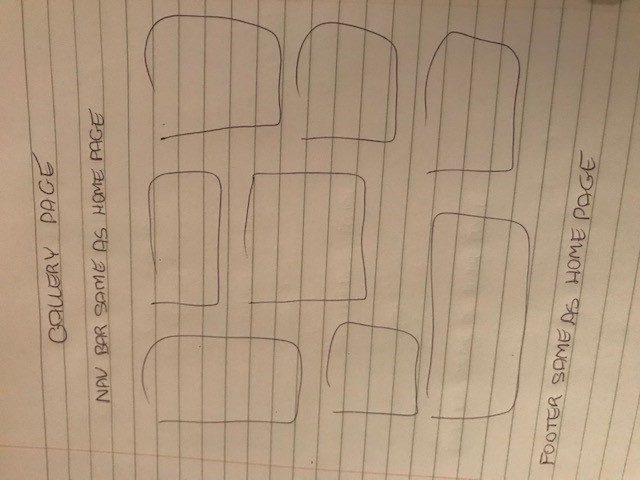 GALLERY PAGE
NAV BAR SAME AS HOME PAGE
FOOTER SAME AS HOME PAGE